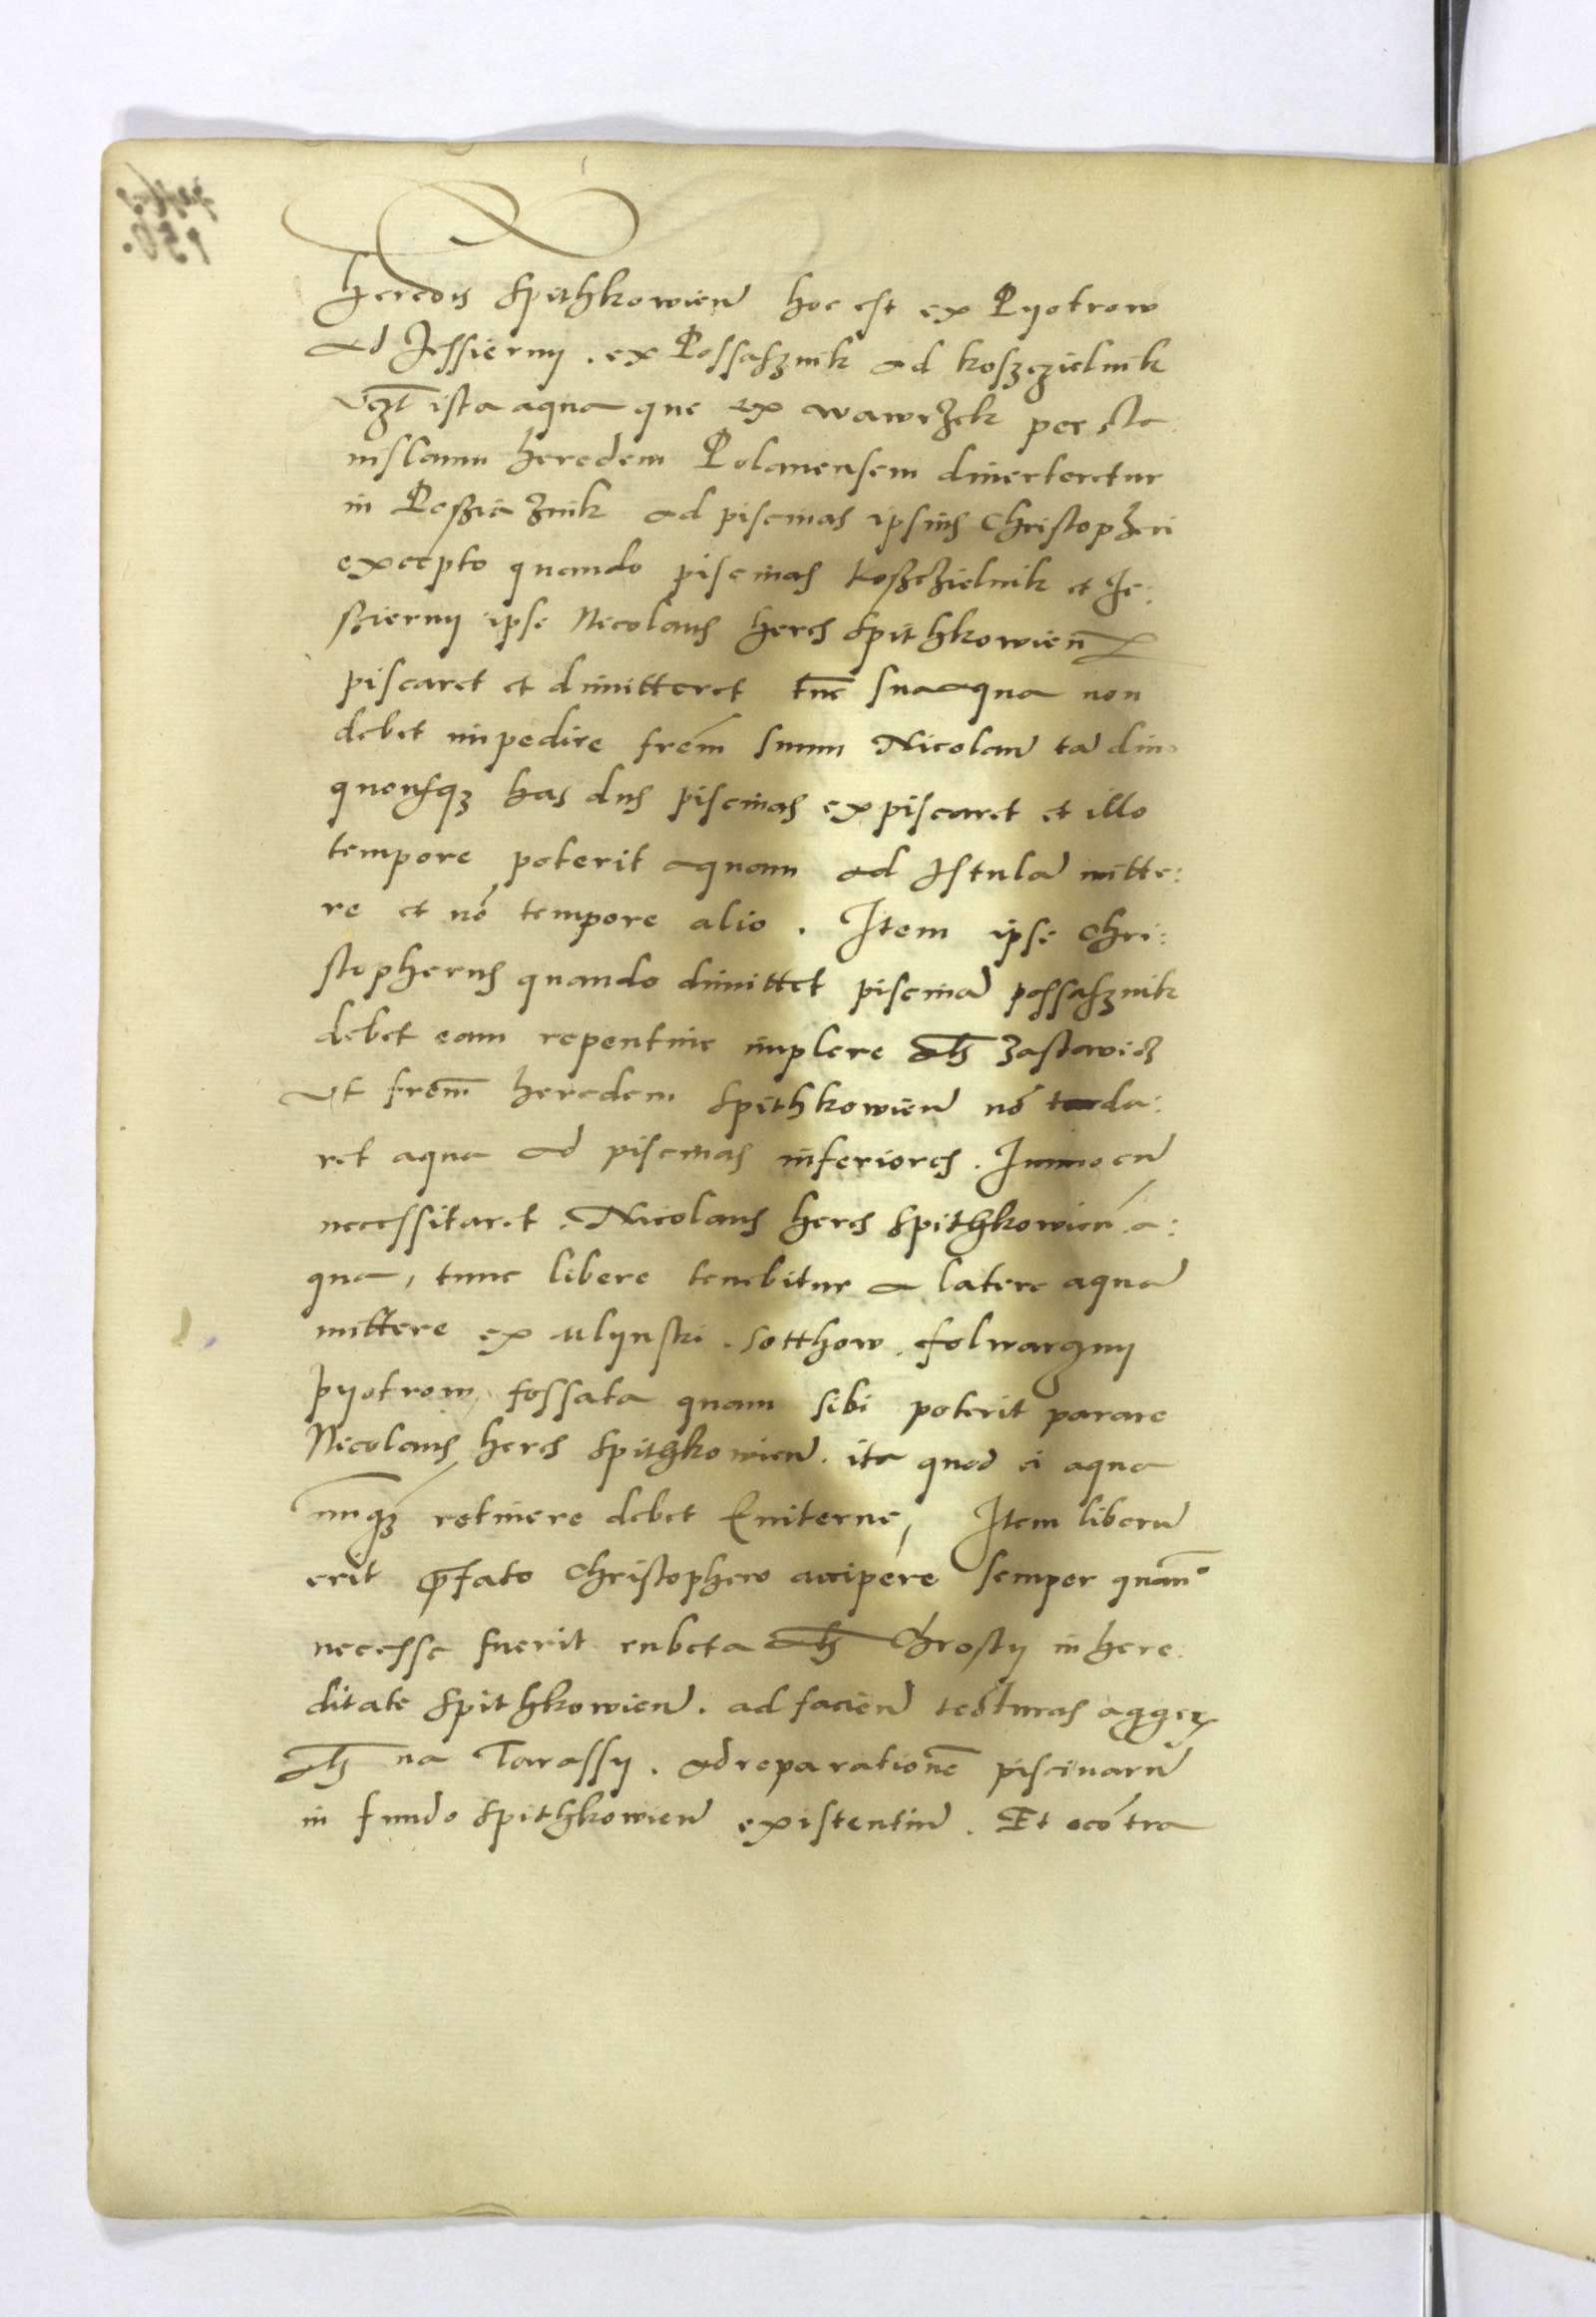 Heredis Spithkowien̄ hoc est ex Pyotrow
ad Jessierny . ex Possasznik ad koszczielnik
ista aqua que ex wawrzek per sta
nislaum heredem Polanensem diuerteretur
in ad piscinas ipsius Christopheri
excepto quando piscinas koszczielnik et Je:
szierny ipse Nicolaus heres Spithkowien̄
piscaret et dimitteret tūc sua aqua non
debet impedire frēm suum Nicolaū tā diu
quousq3 has duas piscinas expiscaret et illo
tempore poterit aquam ad Istulā mitte:
re et nō tempore alio . Item ipse Chri:
stopherus quando dimittet piscinā possasznik
debet eam repentine implere als̄ zastawicz
vt frēm heredem Spithkowien̄ nō tarda:
ret aqua ad piscinas inferiores . Immo cū
necessitaret . Nicolaus heres Spithkowien̄ a:
qua, tunc libere tenebitur a latere aquā
mittere ex Mlynski . Sotthow . folwarczny
pyotrow, fossata quam sibi poterit parare
Nicolaus heres Spithkowien̄ . ita quod ei aqua
nunq3 retinere debet Euiterne, Item liberū
erit p̄fato Christophero accipere semper quan̄º
necesse fuerit rubeta als̄ Chrosty in here
ditate Spithkowien̄ . ad facien̄ tecturas agger
als̄ na Tarassy . ad reparationē piscinarū
in fundo Spithkowien̄ existentiū . Et ecōtra